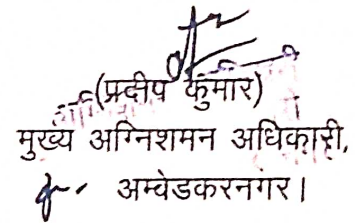 (प्रदीप कुमार)
मुख्य अग्निशमन अधिकारी,
अम्वेडकरनगर।